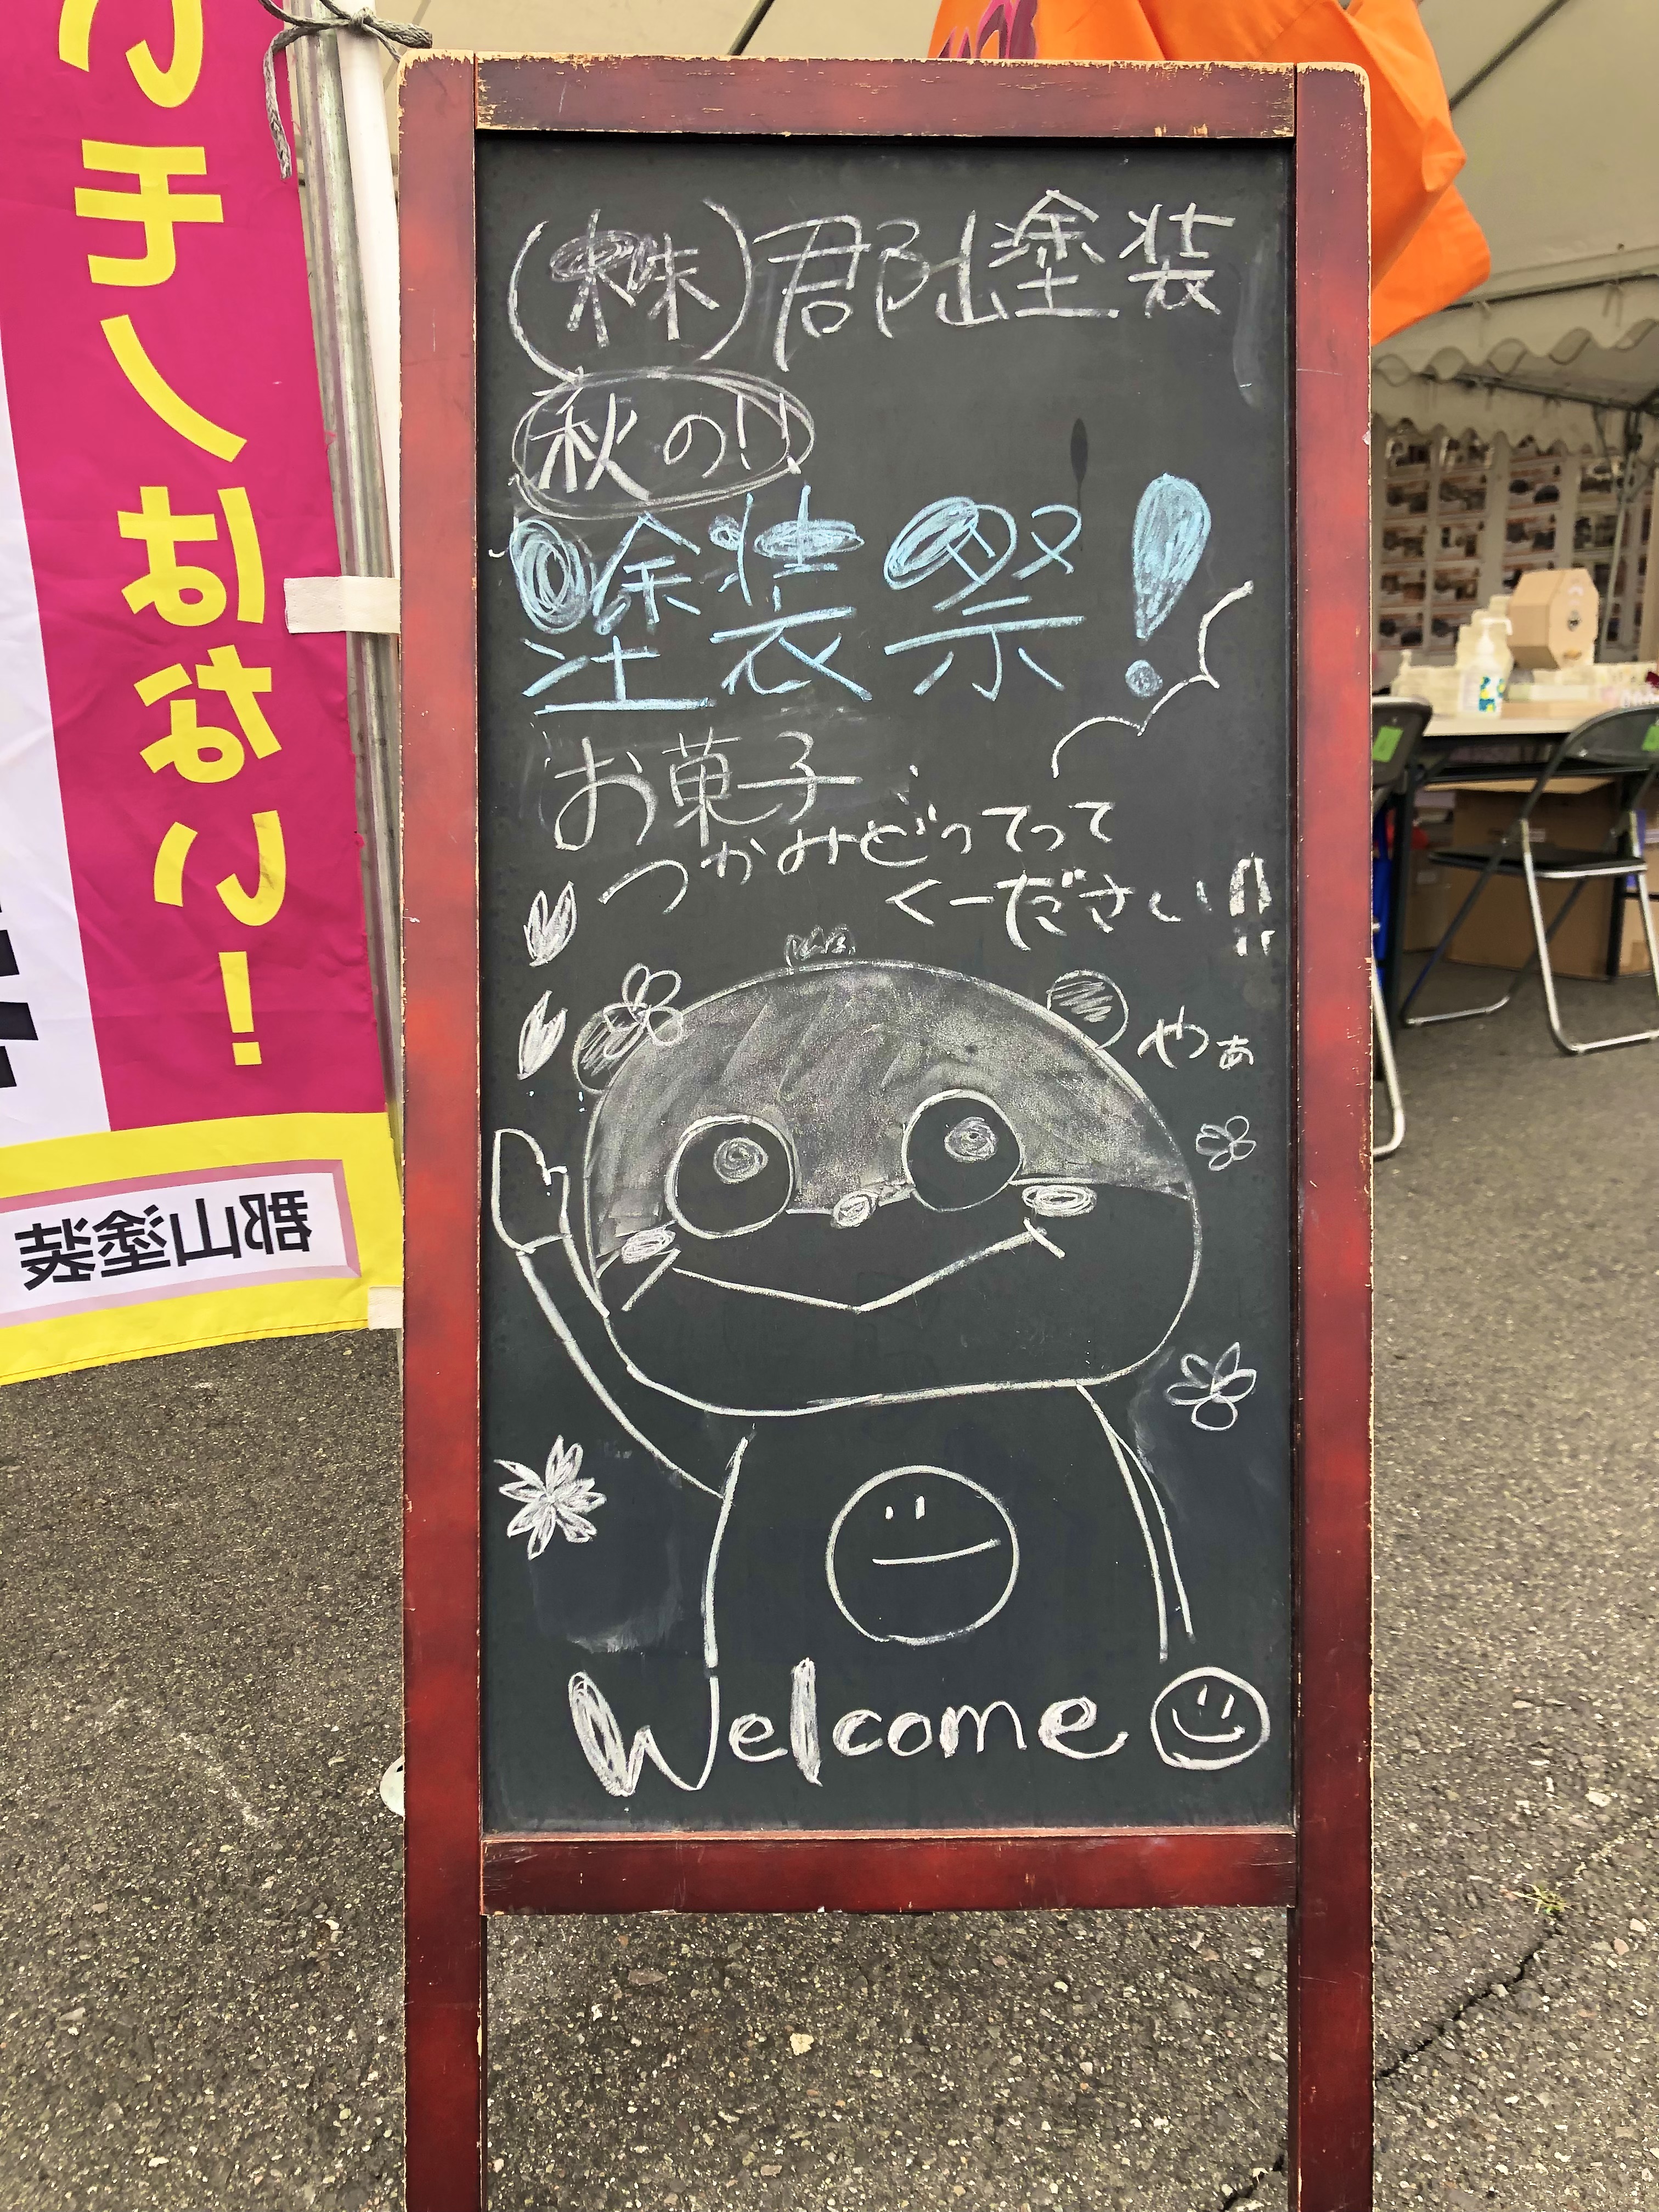 (株)郡山塗装
秋の!!
塗装祭!
お菓子
つかみどってって
くーださい!!
やぁ
Welcome
チンはない!
郡山塗装